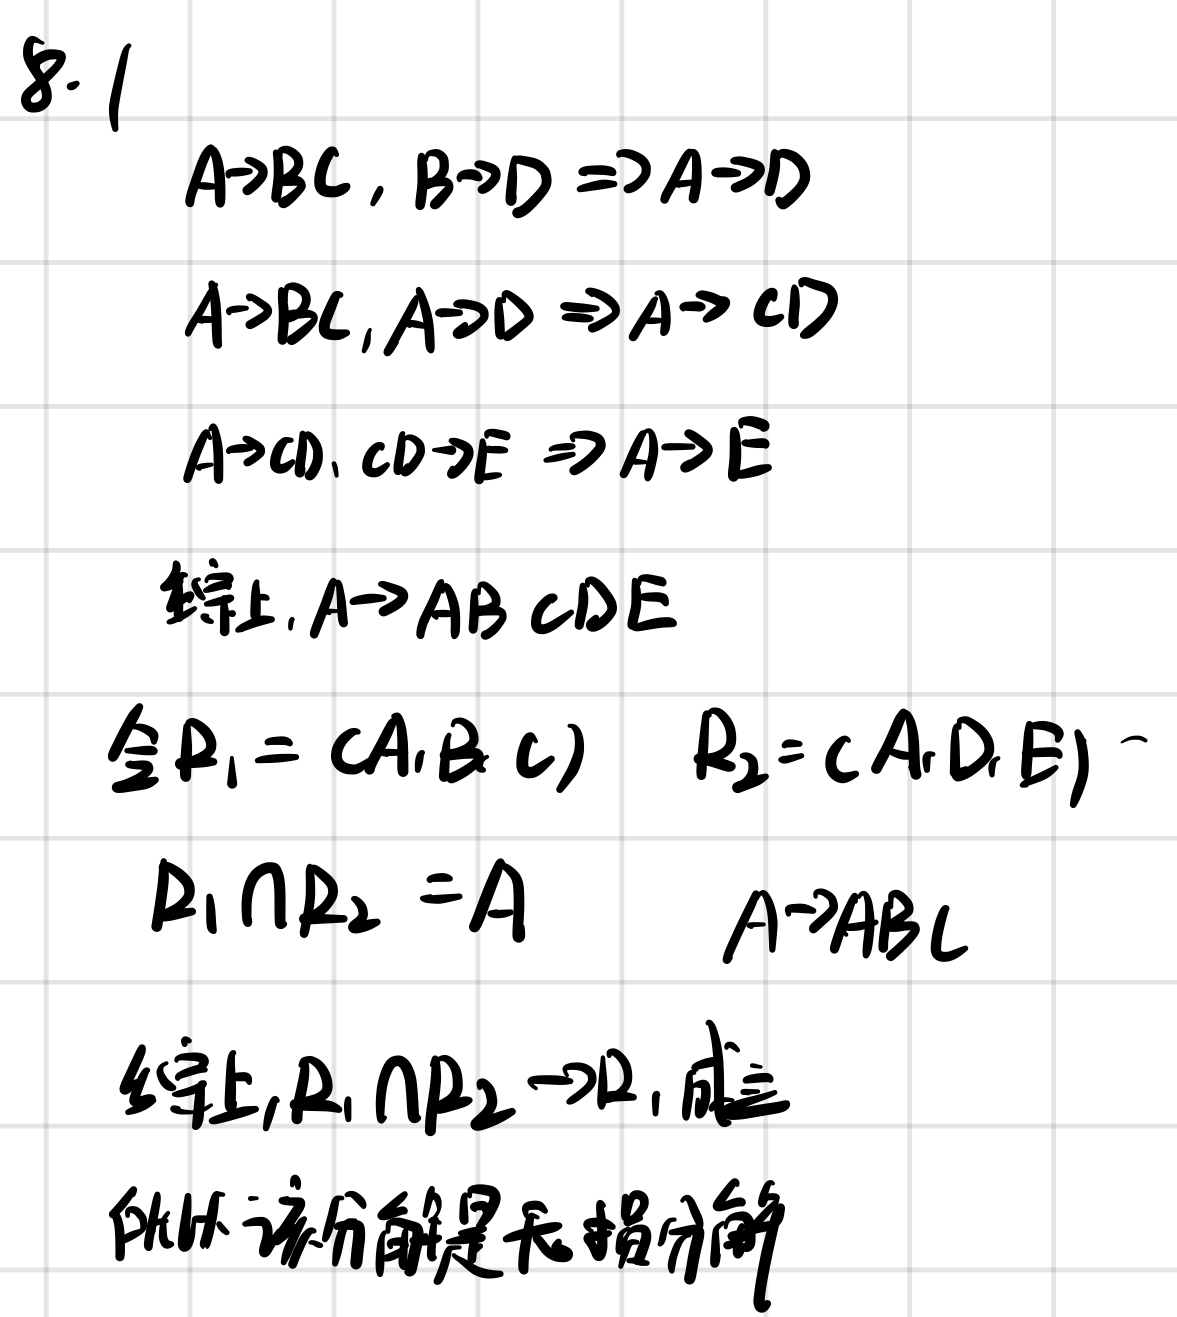 8.1
A→BC, B→D ⇒ A→D
A→BC, A→D ⇒ A→CD
A→CD, CD→E ⇒ A→E
综上, A→ABCDE
令R₁=(A,B,C) R₂=(A,D,E)
R₁∩R₂=A A→ABC
综上, R₁∩R₂→R₁成立
所以该分解是无损分解